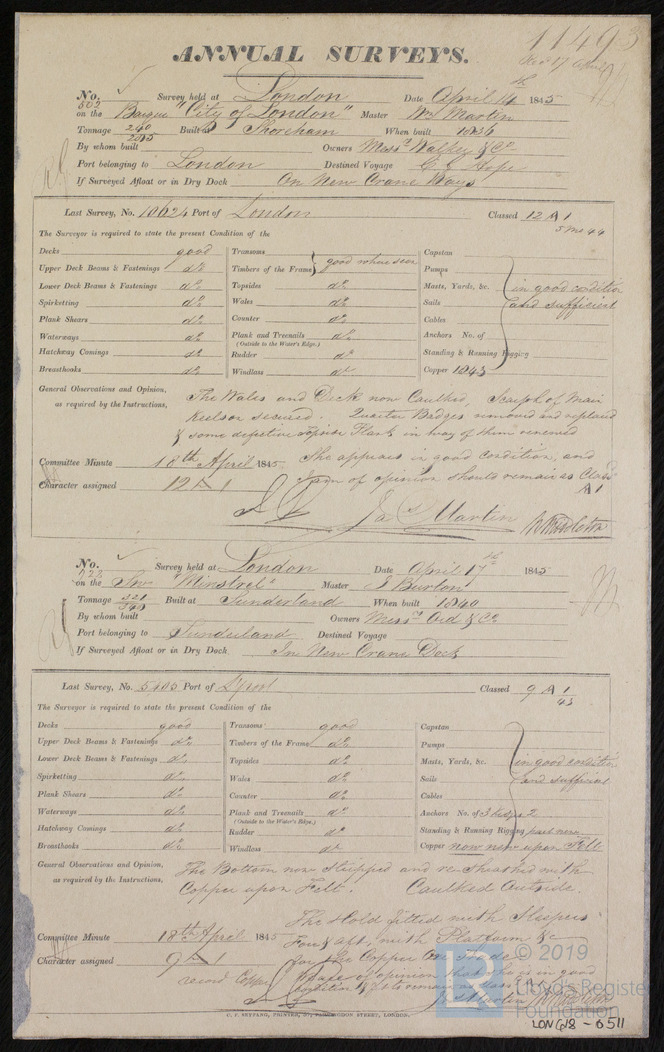 11493
Rec'd 17 April
ANNUAL SURVEYS.
No. 502 Survey held at London Date April 14th 1845
on the Barque "City of London" Master Wm Martin
Tonnage 240 Built at Shoreham When built 1836
By whom built Owners Messrs Walkey & Co
Port belonging to London Destined Voyage C. G. Hope
If Surveyed Afloat or in Dry Dock On New Crane Ways
Last Survey, No. 10624 Port of London Classed 12 A 1
5 Mo 44
The Surveyor is required to state the present Condition of the
Decks good Transoms Capstan
Upper Deck Beams & Fastenings do Timbers of the Frame good where seen Pumps
Lower Deck Beams & Fastenings do Topsides do Masts, Yards, &c. in good condition
Spirketting do Wales do Sails and sufficient
Plank Shears do Counter do Cables
Waterways do Plank and Treenails do Anchors No. of
(Outside to the Water's Edge.)
Hatchway Comings do Rudder do Standing & Running Rigging
Breasthooks do Windlass do Copper 1843
General Observations and Opinion, The Wales and Deck now Caulked, Scarph of Main
as required by the Instructions, Keelson secured. Quarter Badges removed and replaced
& some defective Topside Plank in way of them renewed
Committee Minute 18th April 1845 She appears in good condition, and
Character assigned 12 A 1 I am of opinion should remain as Class'd
A 1
Jas Martin
No. Survey held at London Date April 17th 1845
on the Snw "Minstrel" Master J Burton
Tonnage 321 Built at Sunderland When built 1840
By whom built Owners Messrs Ord & Co
Port belonging to Sunderland Destined Voyage
If Surveyed Afloat or in Dry Dock In New Crane Dock
Last Survey, No. Port of Classed 9 A 1
43
The Surveyor is required to state the present Condition of the
Decks good Transoms good Capstan
Upper Deck Beams & Fastenings do Timbers of the Frame do Pumps
Lower Deck Beams & Fastenings do Topsides do Masts, Yards, &c. in good condition
Spirketting do Wales do Sails and sufficient
Plank Shears do Counter do Cables
Waterways do Plank and Treenails do Anchors No. of 3
(Outside to the Water's Edge.)
Hatchway Comings do Rudder do Standing & Running Rigging part new
Breasthooks do Windlass do Copper now new upon Felt
General Observations and Opinion, The Bottom now Stripped and re-Sheathed with
as required by the Instructions, Copper upon Felt. Caulked Outside.
The Hold fitted with Sleepers
Committee Minute 18th April 1845 Fore & aft, with Platform &c
Character assigned 9 A 1 for the Copper Ore Trade
record Copper of opinion that she is in good
condition
Jas Martin
C. F. SEYFANG, PRINTER, LONDON.
© 2019
Lloyd's Register
Foundation
LON 618 - 0511